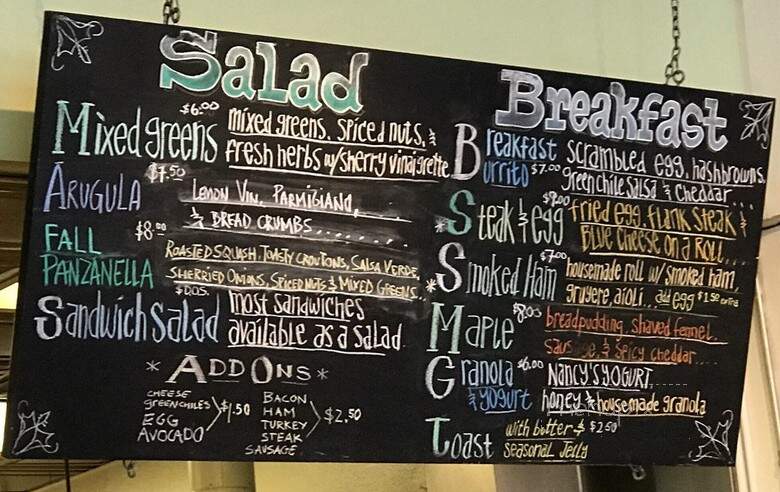 Salad
$6.00
Mixed greens mixed greens, spiced nuts, &
fresh herbs w/sherry vinaigrette
$7.50
ARUGULA LEMON VIN, PARMIGIANO,
& BREAD CRUMBS......
FALL $8.00
PANZANELLA ROASTED SQUASH, TOASTY CROUTONS, SALSA VERDE,
SHERRIED ONIONS, SPICED NUTS & MIXED GREENS..
Sandwich Salad most sandwiches
available as a salad
* ADD ONS *
CHEESE
GREEN CHILES
EGG
AVOCADO
$1.50
BACON
HAM
TURKEY
STEAK
SAUSAGE
$2.50
Breakfast
Breakfast scrambled egg, hashbrowns,
Burrito $7.00 green chile salsa & cheddar...
$9.00
*Steak & egg fried egg, flank steak &
BLUE CHEESE ON A ROLL...
$7.00
*Smoked Ham housemade roll w/ smoked ham,
gruyere, aioli, add egg $1.50 extra
Maple bread pudding, shaved fennel,
sausage, & spicy cheddar....
Granola $6.00 NANCY'S YOGURT,
& yogurt honey & housemade granola
Toast with butter & $2.50
seasonal Jelly